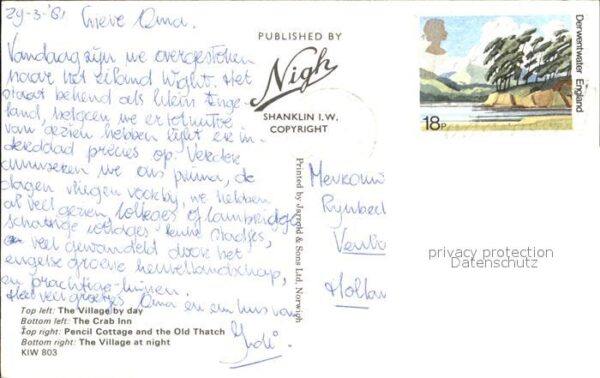 29-3-'81 Lieve Oma.
Vandaag zijn we overgestoken
naar het eiland Wight. Het
staat bekend als klein Enge-
land, hetgeen we er tot nu toe
van gezien hebben lijkt er in-
derdaad precies op. Verder
amuseren we ons prima, de
dagen vliegen voorbij, we hebben
al veel gezien, colleges of Cambridge
schattige cottages leuke stadjes,
veel gewandeld door het
engelse groene heuvellandschap,
en prachtige tuinen.
Heel veel groetjes Oma en een kus van
PUBLISHED BY
Nigh
SHANKLIN I.W.
COPYRIGHT
Printed by Jarrold & Sons Ltd, Norwich
18P
Derwentwater England
Mevrouw
Venlo
Holland
privacy protection
Datenschutz
Top left: The Village by day
Bottom left: The Crab Inn
Top right: Pencil Cottage and the Old Thatch
Bottom right: The Village at night
KIW 803